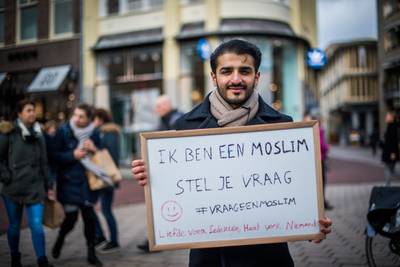 IK BEN EEN MOSLIM
STEL JE VRAAG
#VRAAGEENMOSLIM
Liefde Voor Iedereen, Haat voor Niemand